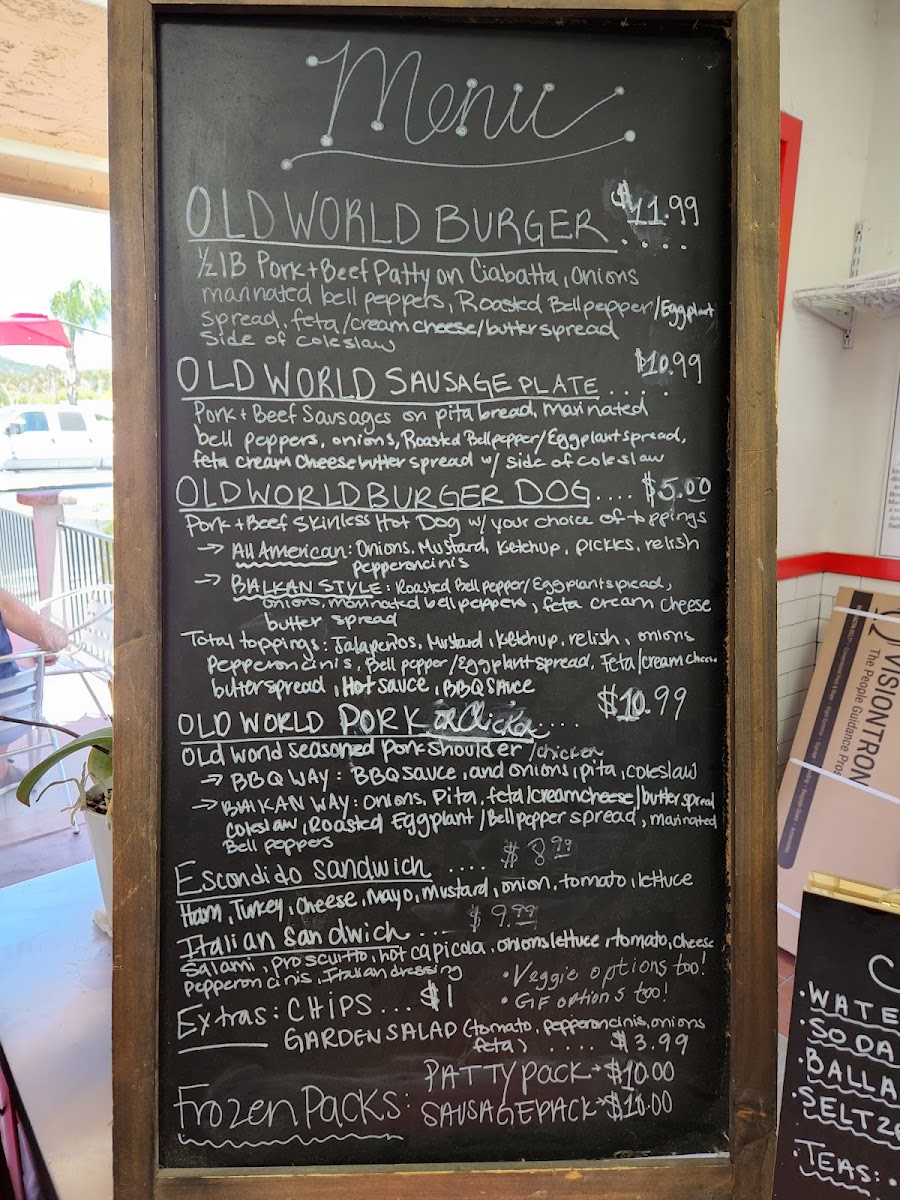 Menu
OLD WORLD BURGER $11.99
....
1/2 lB Pork + Beef Patty on Ciabatta, onions
marinated bell peppers, Roasted Bell pepper/Eggplant
spread, feta/cream cheese/butter spread
Side of coleslaw
OLD WORLD SAUSAGE PLATE.... $10.99
Pork + Beef Sausages on pita bread, marinated
bell peppers, onions, Roasted Bell pepper/Eggplant spread,
feta cream Cheese butter spread w/ side of coleslaw
OLD WORLD BURGER DOG.... $5.00
Pork + Beef Skinless Hot Dog w/ your choice of toppings
→ All American: Onions, Mustard, Ketchup, pickles, relish
pepperoncinis
→ BALKAN STYLE: Roasted Bell pepper/Eggplant spread,
onions, marinated bell peppers, feta cream cheese
butter spread
Total toppings: Jalapeños, Mustard, ketchup, relish, onions
Pepperoncinis, Bell pepper/Eggplant spread, Feta/cream cheese
butter spread, Hot sauce, BBQ sauce
OLD WORLD PORK or Chicken.... $10.99
Old world seasoned pork shoulder/chicken
→ BBQ WAY: BBQ sauce, and onions, pita, coleslaw
→ BALKAN WAY: Onions, Pita, feta/cream cheese/butter spread
coleslaw, Roasted Eggplant/Bell pepper spread, marinated
Bell peppers
Escondido sandwich .... $8.99
Ham, Turkey, Cheese, Mayo, mustard, onion, tomato, lettuce
Italian sandwich... $9.99
Salami, proscuitto, hot capicola, onions lettuce, tomato, cheese
pepperoncinis, Italian dressing
• Veggie options too!
• G/F options too!
Extras: CHIPS...$1
GARDEN SALAD (tomato, pepperoncinis, onions
feta) .... $3.99
Frozen Packs: PATTY pack → $10.00
SAUSAGE PACK → $10.00
VISIONTRON
The People Guidance Pros
C
• WATE
• SODA
• BALLA
• SELTZE
• TEAS: •